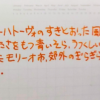 ーハトーヴォのすきとおった風
さをもつ青いそら、うつくし
モリーオ市、郊外のぎらぎら